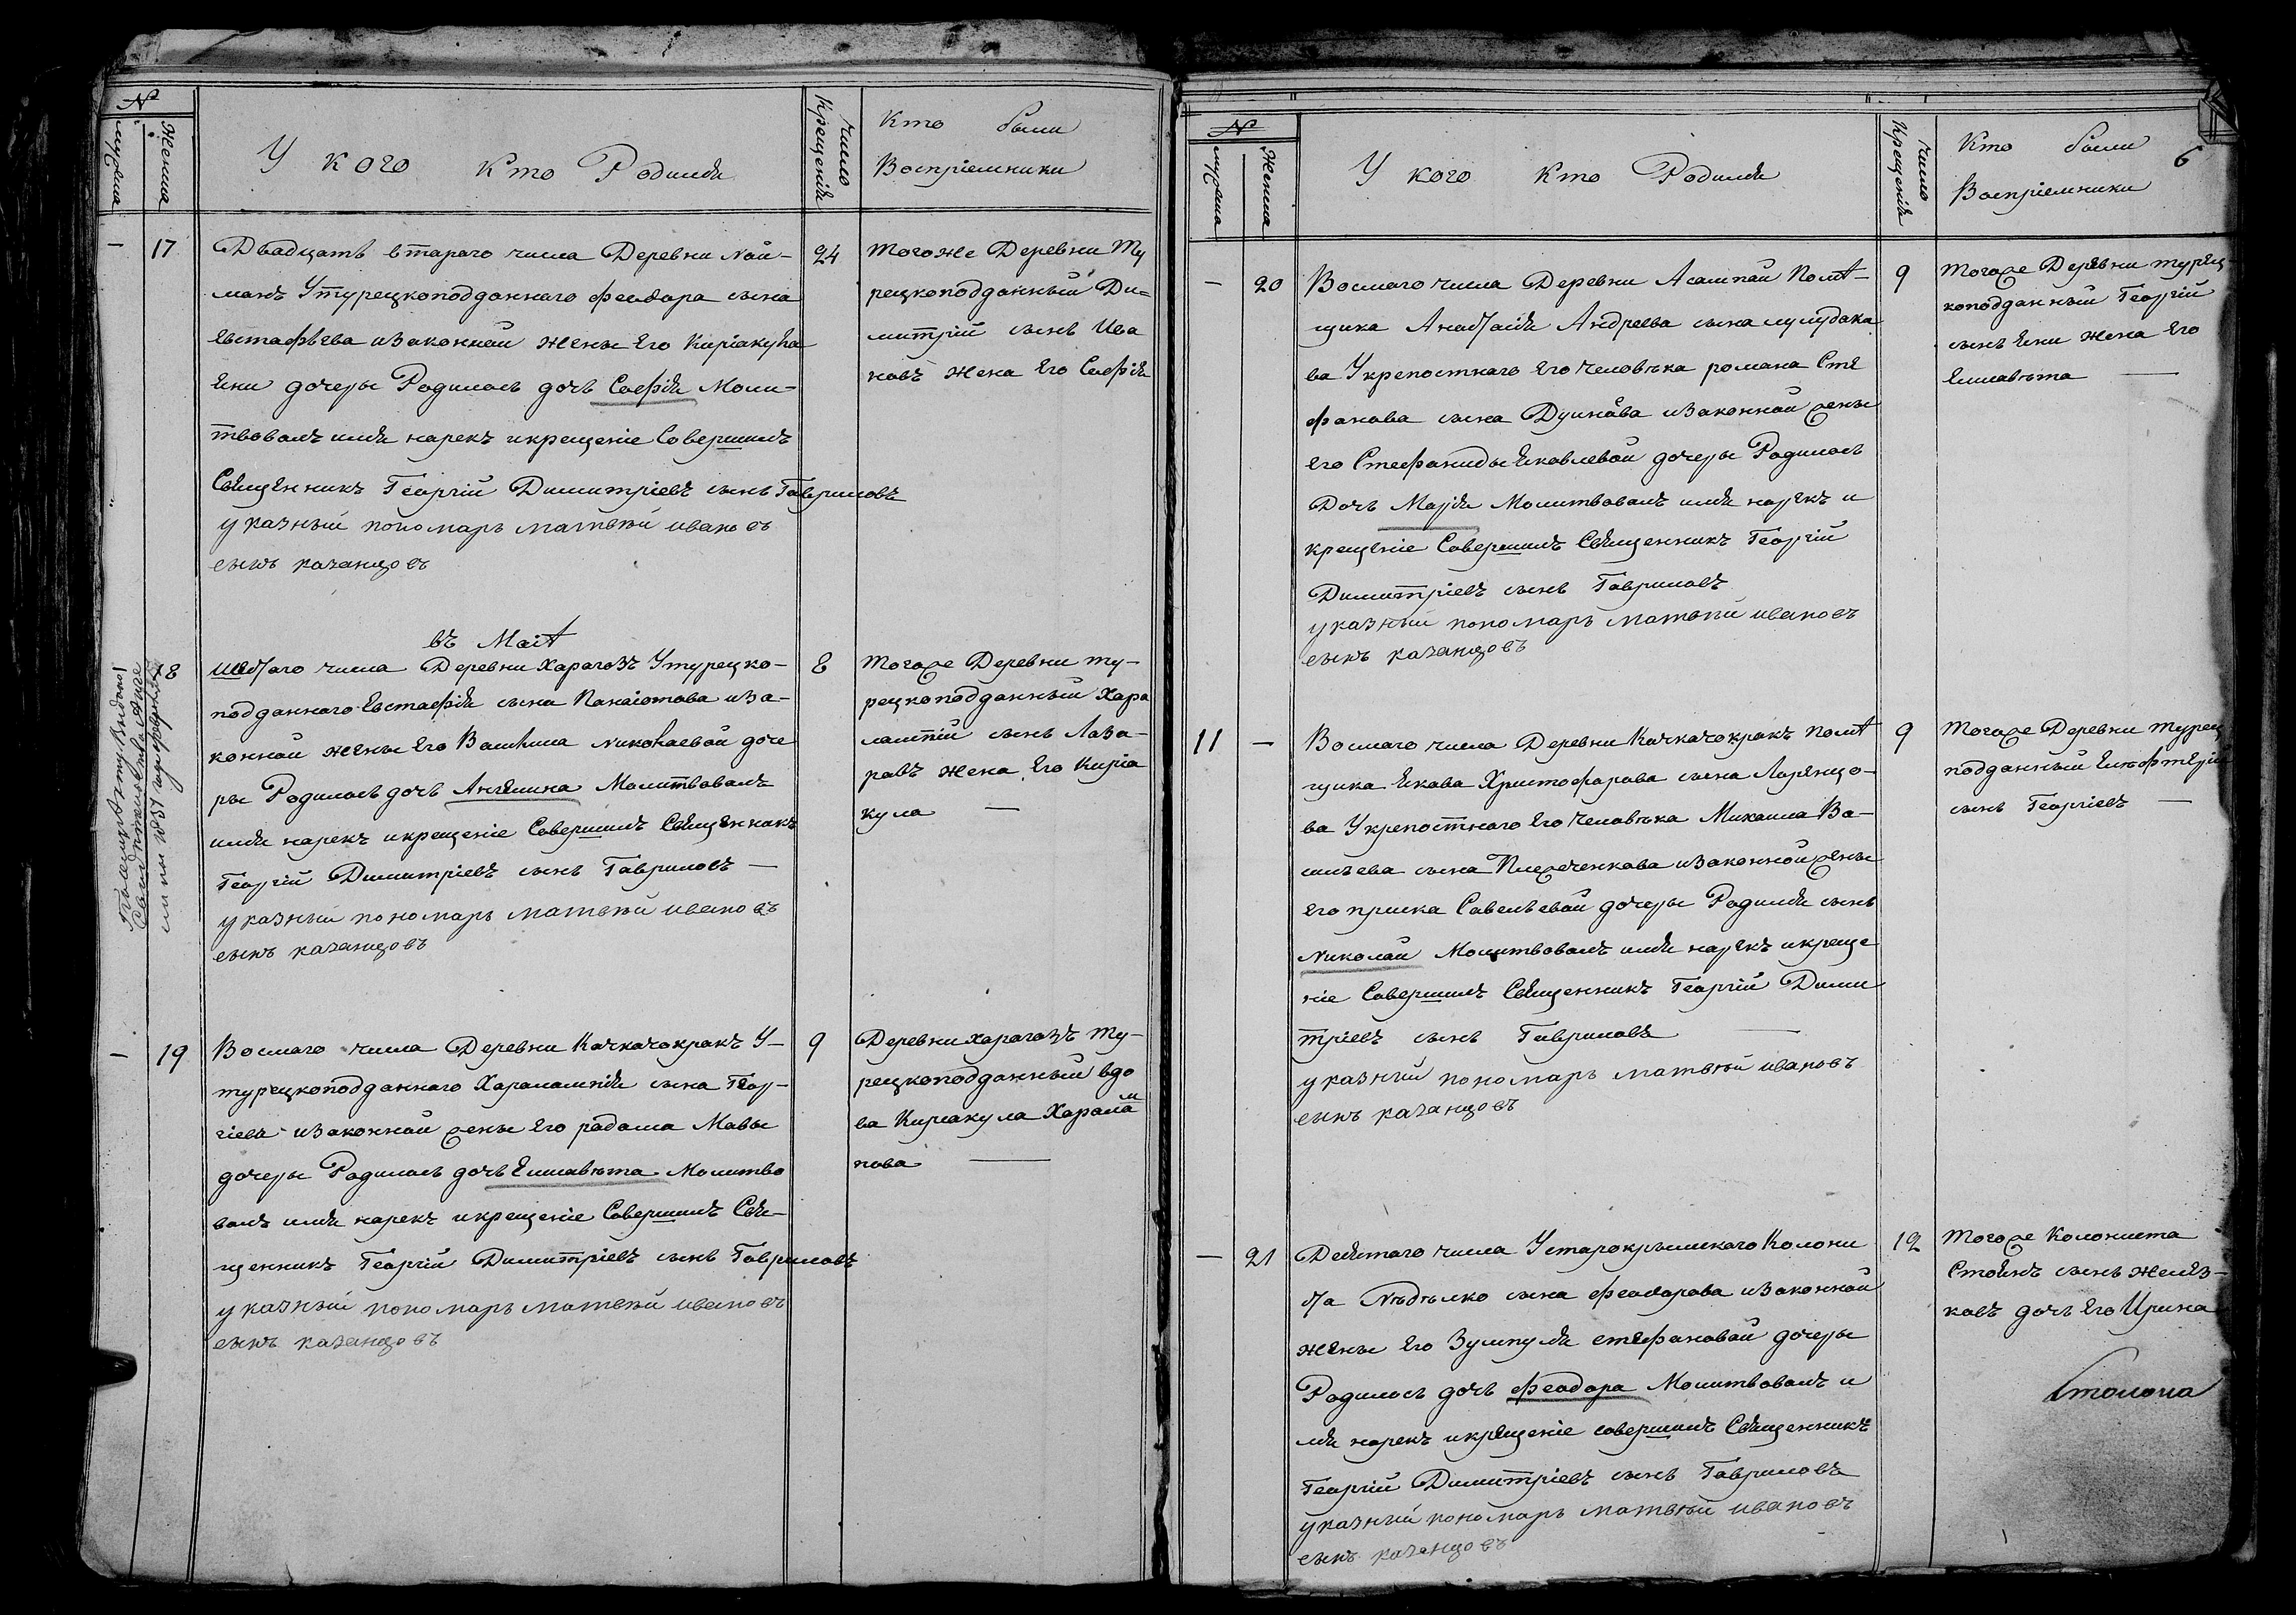 №
мужска
Женска
У кого Кто Родился
Число
Крещенія
Кто были
Воспріемники
— 17
Двадцать втарого числа Деревни Най-
манъ Утурецкоподданнаго Феодора сына
Евстафьева изаконной жены Его Киріакула
Ени дочеры Родилась дочь Софія Моли-
твовалъ имя нарекъ икрещеніе Совершилъ
Священникъ Георгій Димитріевъ сынъ Гавриловъ
указный пономарь матвѣй ивановъ
сынъ казанцовъ
24
Тогоже Деревни Ту
рецкоподданный Ди=
митрій сынъ Ива
новъ жена Его Софія
въ Маіѣ
18
Шестаго числа Деревни Харагозъ Утурецко-
подданнаго Евстафія сына Панаіотова иза-
конной жены Его Василиса Николаевой доче
ры Родилась дочь Ангелина Молитвовалъ
имя нарекъ икрещеніе Совершилъ Священникъ
Георгій Димитріевъ сынъ Гавриловъ —
указный пономарь матвѣй ивановъ
сынъ казанцовъ
8
Тогоже Деревни ту-
рецкоподданный Хара
лампій сынъ Лаза-
ровъ жена Его Киріа
кула —
— 19
Восмаго числа Деревни Качкачокракъ У-
турецкоподданнаго Харалампія сына Геор-
гіева изаконной жены Его радама Мавы
дочеры Родилась дочь Елисавета Молитво
валъ имя нарекъ икрещеніе Совершилъ Свя-
щенникъ Георгій Димитріевъ сынъ Гавриловъ
указный пономарь матвѣй ивановъ
сынъ казанцовъ
9
Деревни харагозъ ту-
рецкоподданный вдо
ва Киріакула Харалам
пова —
№
мужска
Женска
У кого Кто Родился
Число
Крещенія
Кто были
Воспріемники
6
— 20
Восмаго числа Деревни Асанпай Помѣ-
щика Анастасія Андреева сына
ва Укрепостнаго Его человѣка романа Сте
фанова сына изаконной жены
Его Стефаниды Яковлевой дочеры Родилась
Дочь Марія Молитвовалъ имя нарекъ и
крещеніе Совершилъ Священникъ Георгій
Димитріевъ сынъ Гавриловъ
указный пономарь матвѣй ивановъ
сынъ казанцовъ
9
Тогоже Деревни турец-
коподданный Георгій
сынъ Ени жена Его
Елисавета —
11 —
Восмаго числа Деревни Качкачокракъ Помѣ
щика Якова Христофорова сына Ларенцо-
ва Укрепостнаго Его человѣка Михаила Ва-
сильева сына Плеченкова изаконной жены
Его приска Савельевой дочеры Родился сынъ
Николай Молитвовалъ имя нарекъ икреще
ніе Совершилъ Священникъ Георгій Дими
тріевъ сынъ Гавриловъ —
указный пономарь матвѣй ивановъ
сынъ казанцовъ
9
Тогоже Деревни Турец
подданный Елефтерій
сынъ Георгіевъ —
— 21
Девятаго числа Устарокрымскаго Колони
ста Нѣдѣлко сына Феодорова изаконной
жены Его Зумпуля стефановой дочеры
Родилась дочь Феодора Молитвовалъ и
мя нарекъ икрещеніе совершилъ Священникъ
Георгій Димитріевъ сынъ Гавриловъ
указный пономарь матвѣй ивановъ
сынъ казанцовъ
12
Тогоже Колониста
Стоянъ сынъ желяз-
ковъ дочь Его Ирина